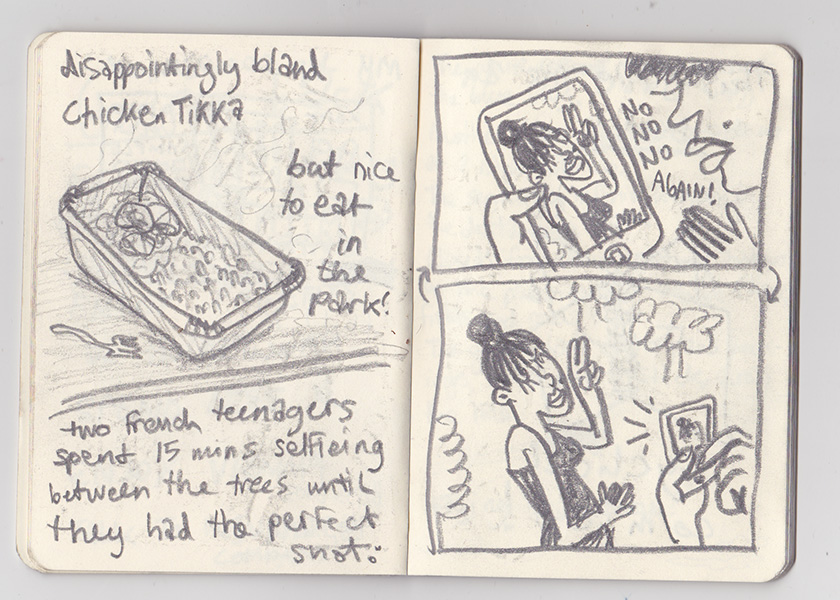 disappointingly bland
Chicken Tikka
but nice
to eat
in
the
park!
two french teenagers
spent 15 mins selfieing
between the trees until
they had the perfect
shot:
NO
NO
NO
AGAIN!